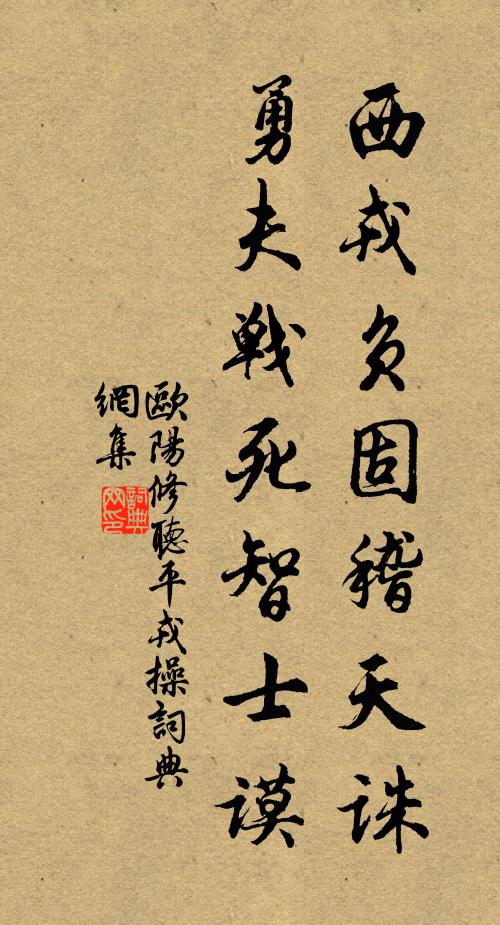 西戎负固稽天誅
勇夫戦死智士謨
歐陽修聽平戎操詞典
網集
詞典
网印